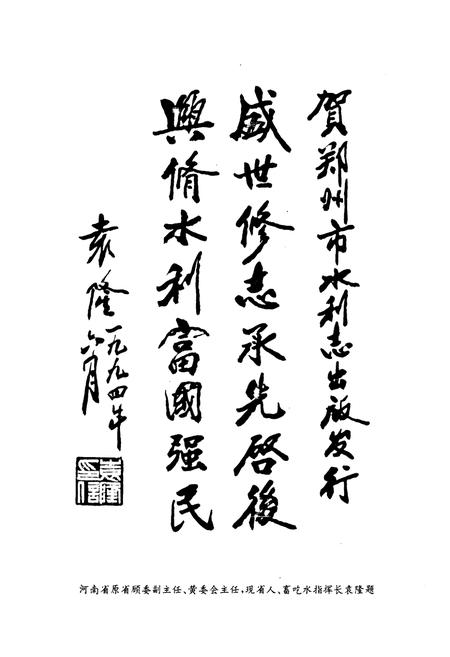 賀郑州市水利志出版发行
盛世修志承先啓後
興脩水利富國强民
袁隆一九九四年
六月
袁隆
印信
河南省原省顾委副主任、黄委会主任,现省人、畜吃水指挥长袁隆题